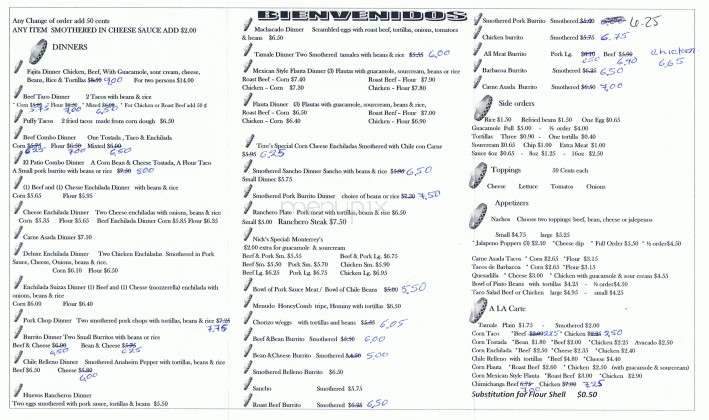 Any Change of order add 50 cents
ANY ITEM SMOTHERED IN CHEESE SAUCE ADD $2.00
DINNERS
Fajita Dinner Chicken, Beef, With Guacamole, sour cream, cheese,
Beans, Rice & Tortillas 9.00 For two persons $14.00
Beef Taco Dinner 2 Tacos with beans & rice
Puffy Taco 2 fried tacos made from corn dough $6.50
Beef Combo Dinner One Tostada, Taco & Enchilada
El Patio Combo Dinner A Corn Bean & Cheese Tostada, A Flour Taco
A Small pork burrito with beans or rice
(1) Beef and (1) Cheese Enchilada Dinner with beans & rice
Corn $5.65 Flour $5.95
Cheese Enchilada Dinner Two Cheese enchiladas with onions, beans & rice
Corn $5.35 Flour $5.65 Beef Enchilada Dinner Corn $5.85 Flour $6.35
Carne Asada Dinner $7.50
Deluxe Enchilada Dinner Two Chicken Enchiladas Smothered in Pork
Sauce, Cheese, Onions, beans & rice.
Corn $6.10 Flour $6.50
Enchilada Suizas Dinner (1) Beef and (1) Cheese (mozzerella) enchilada with
onions, beans & rice
Corn $6.09 Flour $6.40
Pork Chop Dinner Two smothered pork chops with tortillas, beans & rice
7.75
Burrito Dinner Two Small Burritos with beans or rice
Beef & Cheese Bean & Cheese
Chile Relleno Dinner Smothered Anaheim Pepper with tortillas, beans & rice
Beef $6.50 Cheese
6.00
Huevos Rancheros Dinner
Two eggs smothered with pork sauce, tortillas & beans $5.50
BIENVENIDOS
Machacado Dinner Scrambled eggs with roast beef, tortillas, onions, tomatoes
& beans $6.50
Tamale Dinner Two Smothered tamales with beans & rice $5.35 6.00
Mexican Style Flauta Dinner (3) Flautas with guacamole, sourcream, beans or rice
Roast Beef - Corn $7.40 Roast Beef - Flour $7.90
Chicken - Corn $7.30 Chicken - Flour $7.80
Flauta Dinner (3) Flautas with guacamole, sourcream, beans & rice,
Roast Beef - Corn $6.50 Roast Beef - Flour $7.00
Chicken - Corn $6.40 Chicken - Flour $6.90
Tom's Special Corn Cheese Enchiladas Smothered with Chile con Carne
$5.95 6.25
Smothered Sancho Dinner Sancho with beans & rice 6.50
Small Dinner $5.75
Smothered Pork Burrito Dinner choice of beans or rice 7.50
Ranchero Plate Pork meat with tortillas, beans & rice $6.50
Small $3.00 Ranchero Steak $7.50
Nick's Special: Monterrey's
$2.00 extra for guacamole & sourcream
Beef & Pork Sm. $5.55 Beef & Pork Lg. $6.75
Beef Sm. $5.50 Pork Sm. $5.70 Chicken Sm. $5.90
Beef Lg. $6.25 Pork Lg. $6.75 Chicken Lg. $6.95
Bowl of Pork Sauce Meat / Bowl of Chile Beans 5.50
Menudo HoneyComb tripe, Hominy with tortillas $6.50
Chorizo w/eggs with tortillas and beans 6.05
Beef & Bean Burrito Smothered 6.00
Bean & Cheese Burrito Smothered 5.00
Smothered Relleno Burrito $6.50
Sancho Smothered $5.75
Roast Beef Burrito Smothered 6.50
Smothered Pork Burrito Smothered 6.25
Chicken burrito Smothered $5.75 6.75
All Meat Burrito Pork Lg. Beef chicken
6.50 6.40 6.65
Barbacoa Burrito Smothered 6.50
Carne Asada Burrito Smothered 7.00
Side orders
Rice $1.50 Refried beans $1.50 One Egg $0.65
Guacamole Full $5.00 - ½ order $4.00
Tortillas Three $0.90 - One tortilla $0.40
Sourcream $0.65 Chip $1.00 Extra Meat $1.00
Sauce 4oz $0.65 - 8oz $1.25 - 16oz $2.50
Toppings 50 Cents each
Cheese Lettuce Tomato Onions
Appetizers
Nachos Choose two toppings: beef, bean, cheese or jalepenos
Small $4.75 large $5.25
*Jalapeno Poppers (3) $2.50 *Cheese dip * Full Order $5.50 * ½ order$4.50
Carne Asada Tacos * Corn $2.65 *Flour $3.15
Tacos de Barbacoa * Corn $2.65 *Flour $3.15
Quesadilla * Cheese $3.00 * Chicken with guacamole & sour cream $4.55
Bowl of Pinto Beans with tortillas $4.25 - ½ order$4.10
Taco Salad Beef or Chicken large $4.95 - small $4.25
A LA Carte
Tamale Plain $1.75 - Smothered $2.00
Corn Taco *Beef Chicken 2.50
Corn Tostada *Bean $1.90 *Beef $2.00 *Chicken $2.25 Avocado $2.50
Corn Enchilada *Beef $2.50 *Cheese $2.35 *Chicken $2.40
Chile Relleno with tortillas *Beef $4.80 *Cheese $4.40
Corn Flauta *Roast Beef $2.60 * Chicken $2.50 (with guacamole & sourcream)
Corn Mexican Style Flauta *Roast Beef $3.00 *Chicken $2.90
Chimichanga Beef Chicken 7.25
7.00
Substitution for Flour Shell $0.50